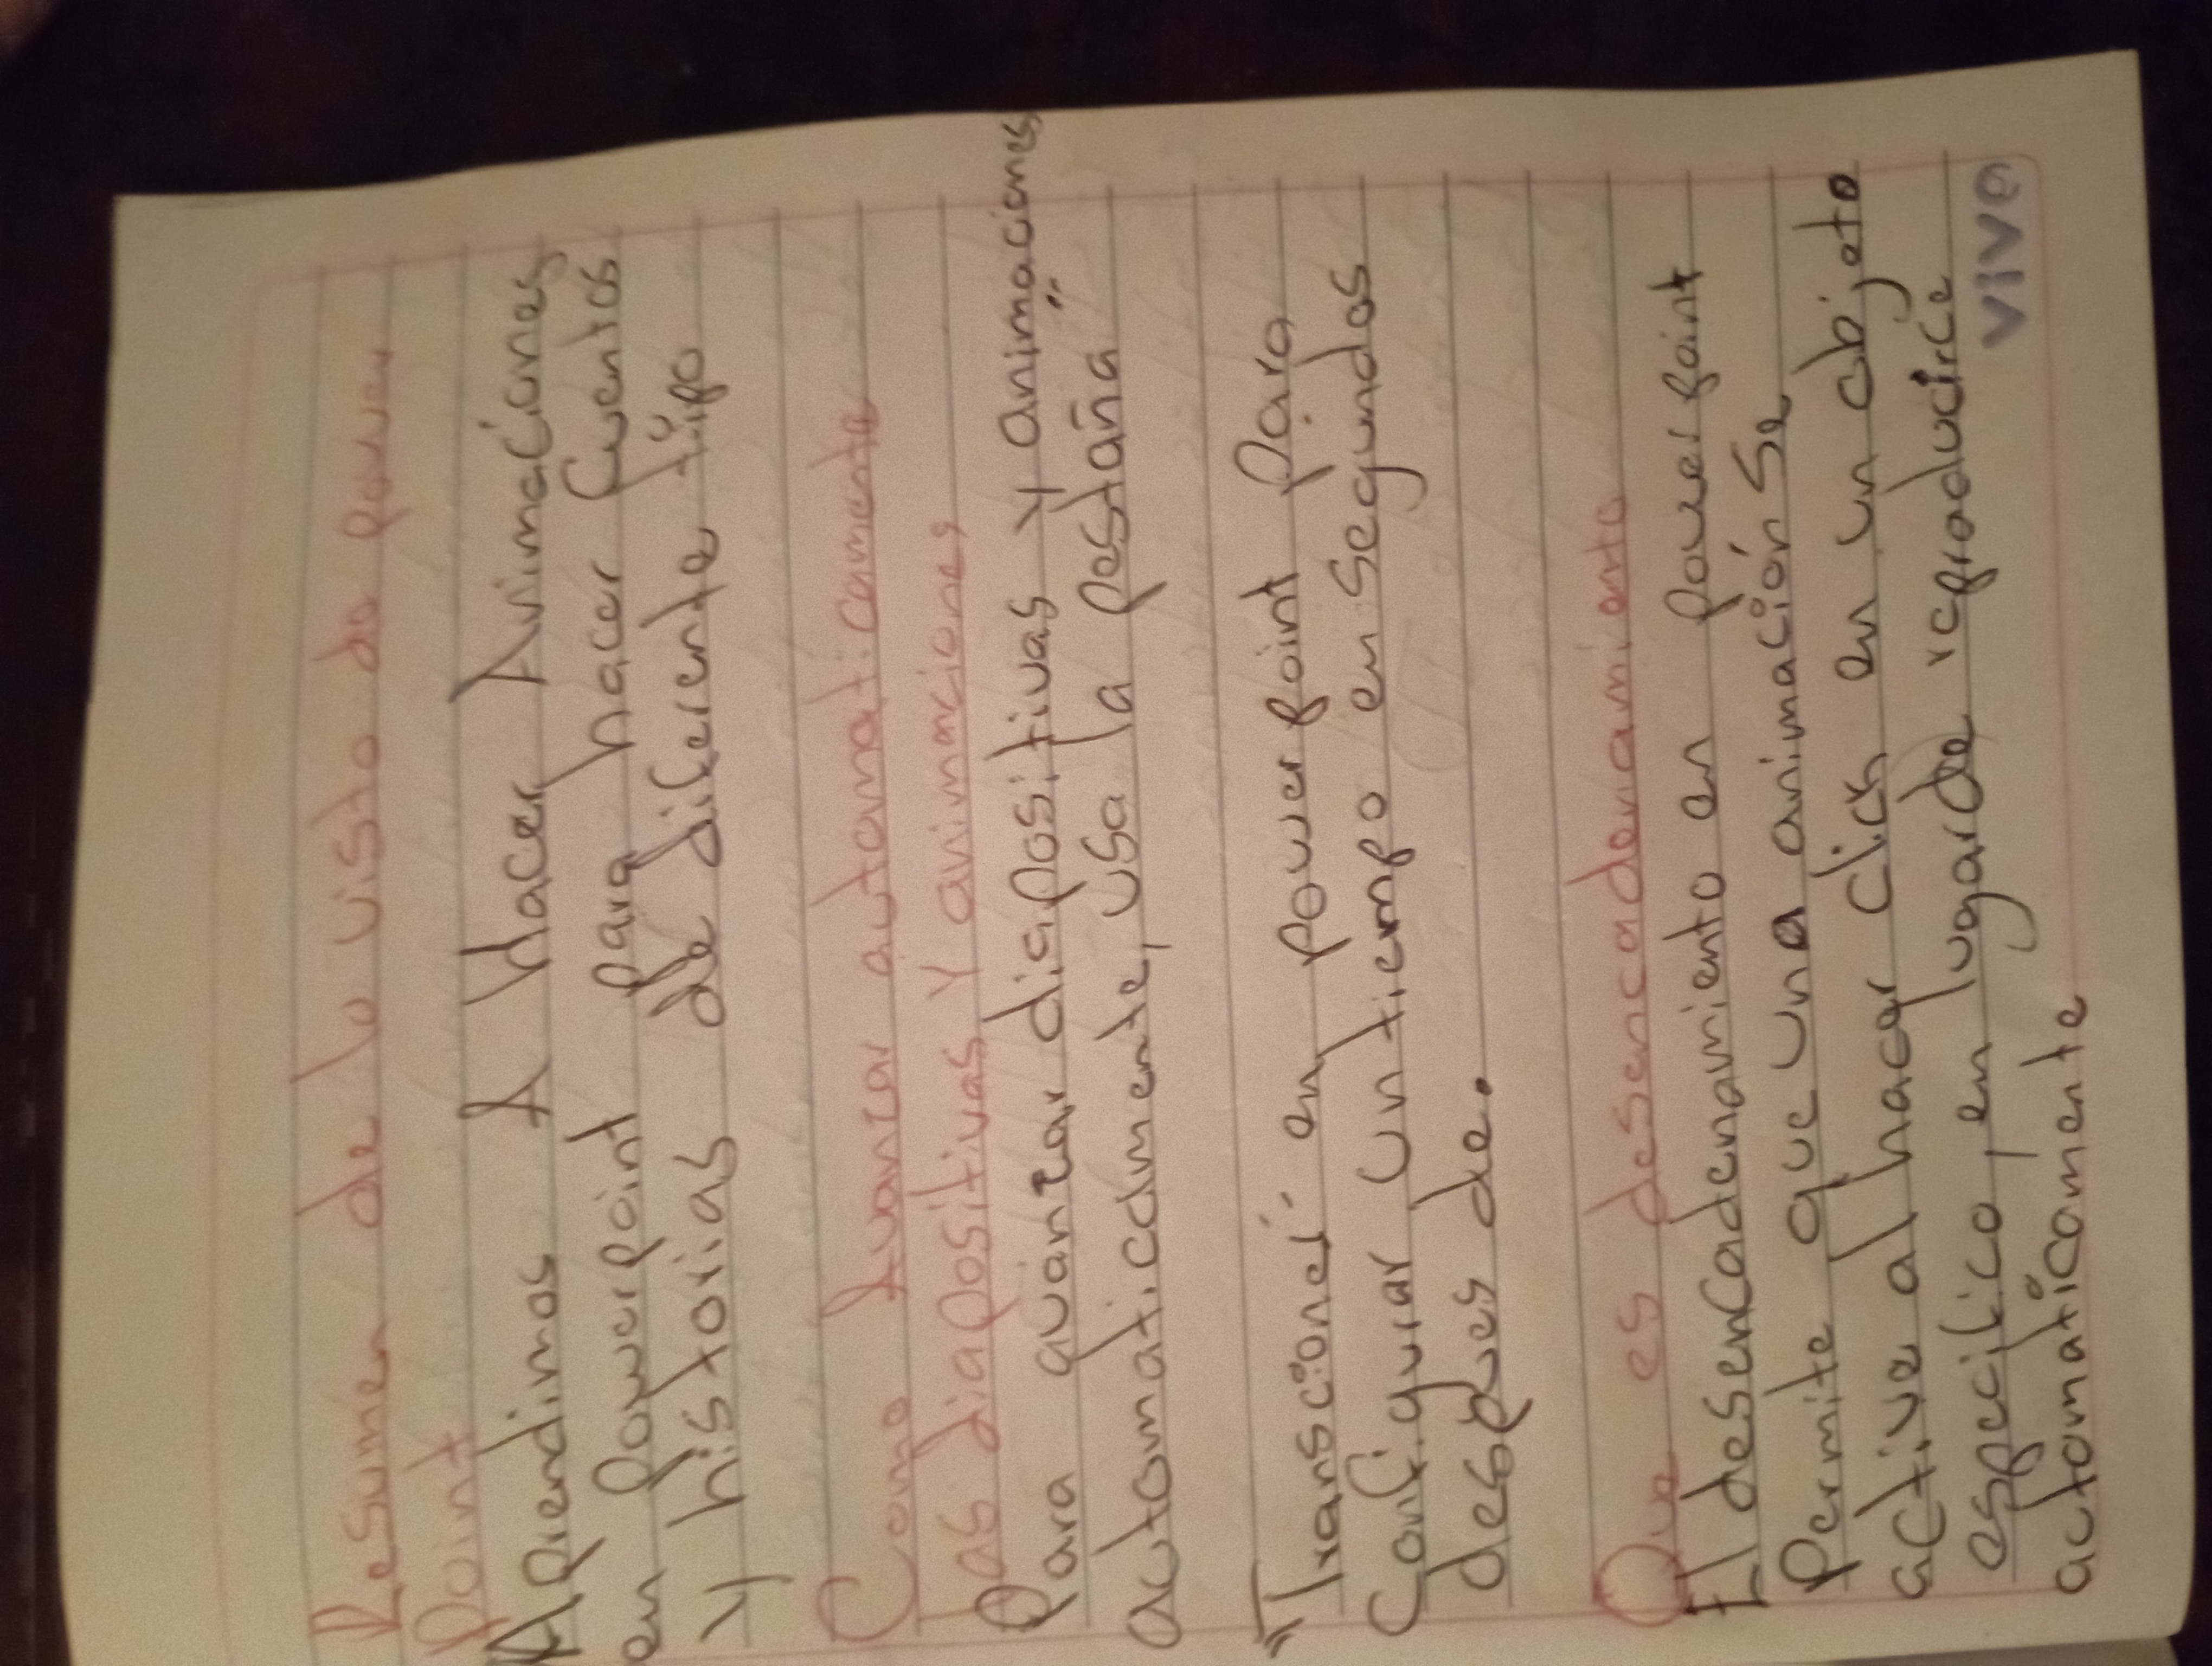 Resumen de lo visto de power
Point
Aprendimos A Hacer Animaciones
en Powerpoint para hacer Cuentos
y historias de diferente tipo
Como Avanzar automaticamente
las diapositivas y animaciones
Para avanzar diapositivas y animaciones
automaticamente, usa la pestaña "
"Transciones" en power point para
Configurar un tiempo en segundos
despues de.
Que es desencadenamiento
El desencadenamiento en power point
Permite que una animación se
active al hacer click en un objeto
especifico, en lugar de reproducirce
automaticamente
viva